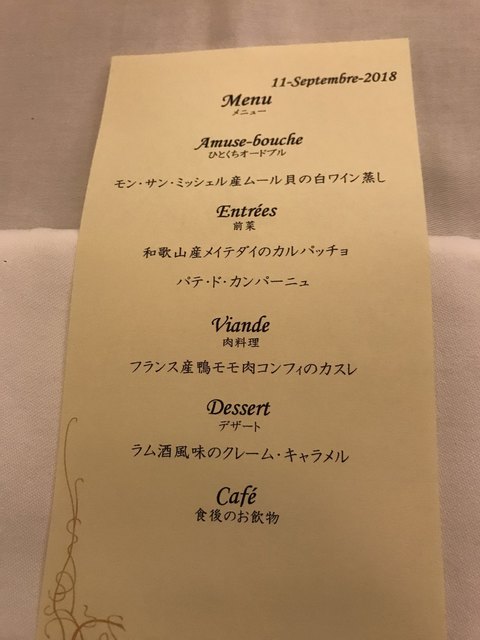 11-Septembre-2018
Menu
メニュー
Amuse-bouche
ひとくちオードブル
モン・サン・ミッシェル産ムール貝の白ワイン蒸し
Entrées
前菜
和歌山産メイテダイのカルパッチョ
パテ・ド・カンパーニュ
Viande
肉料理
フランス産鴨モモ肉コンフィのカスレ
Dessert
デザート
ラム酒風味のクレーム・キャラメル
Café
食後のお飲物